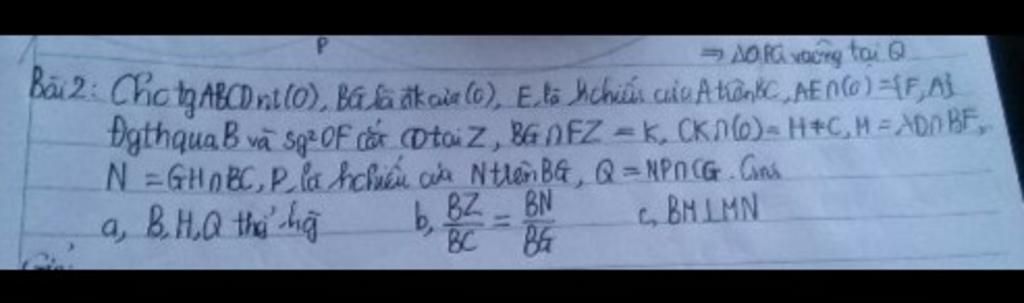 P
⇒ ΔOPG vuông tại Q
Bài 2: Cho tg ABCD nt (O), BG là đk của (O), E là hchiếu của A trên BC, AE∩(O) = {F, A}
Đgth qua B và sg² DF cắt CD tại Z, BG∩FZ = K, CK∩(O) = H≠C, M = AD∩BF,
N = GH∩BC, P là hchiếu của N trên BG, Q = NP∩CG. Cms
a, B, H, Q thẳng hg b, BZ/BC = BN/BG c, BM⊥MN